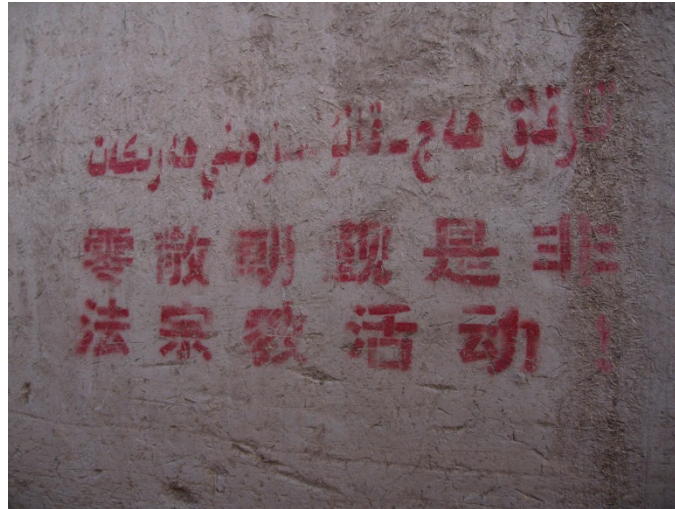 تارقاق ھەج - قانۇنسىز دىنىي
零散朝觐是非
法宗教活动！